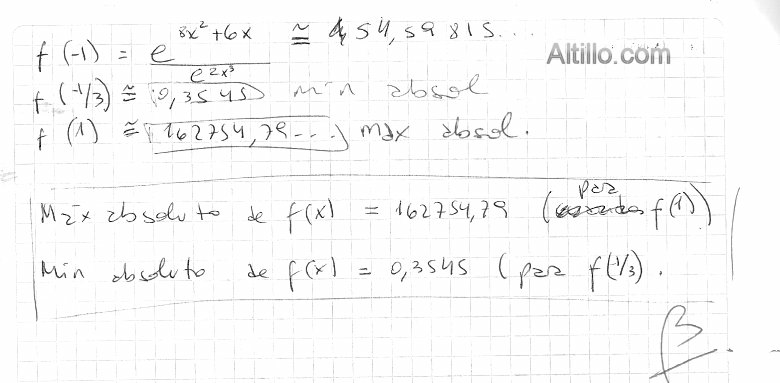 f (-1) = e^(8x²+6x) / e^(2x³) ≅ 54,59815...
Altillo.com
f (-1/3) ≅ 0,3545 min absol
f (1) ≅ 162754,79... max absol.
Máx absoluto de f(x) = 162754,79 (para f(1))
Min absoluto de f(x) = 0,3545 (para f(-1/3).
B